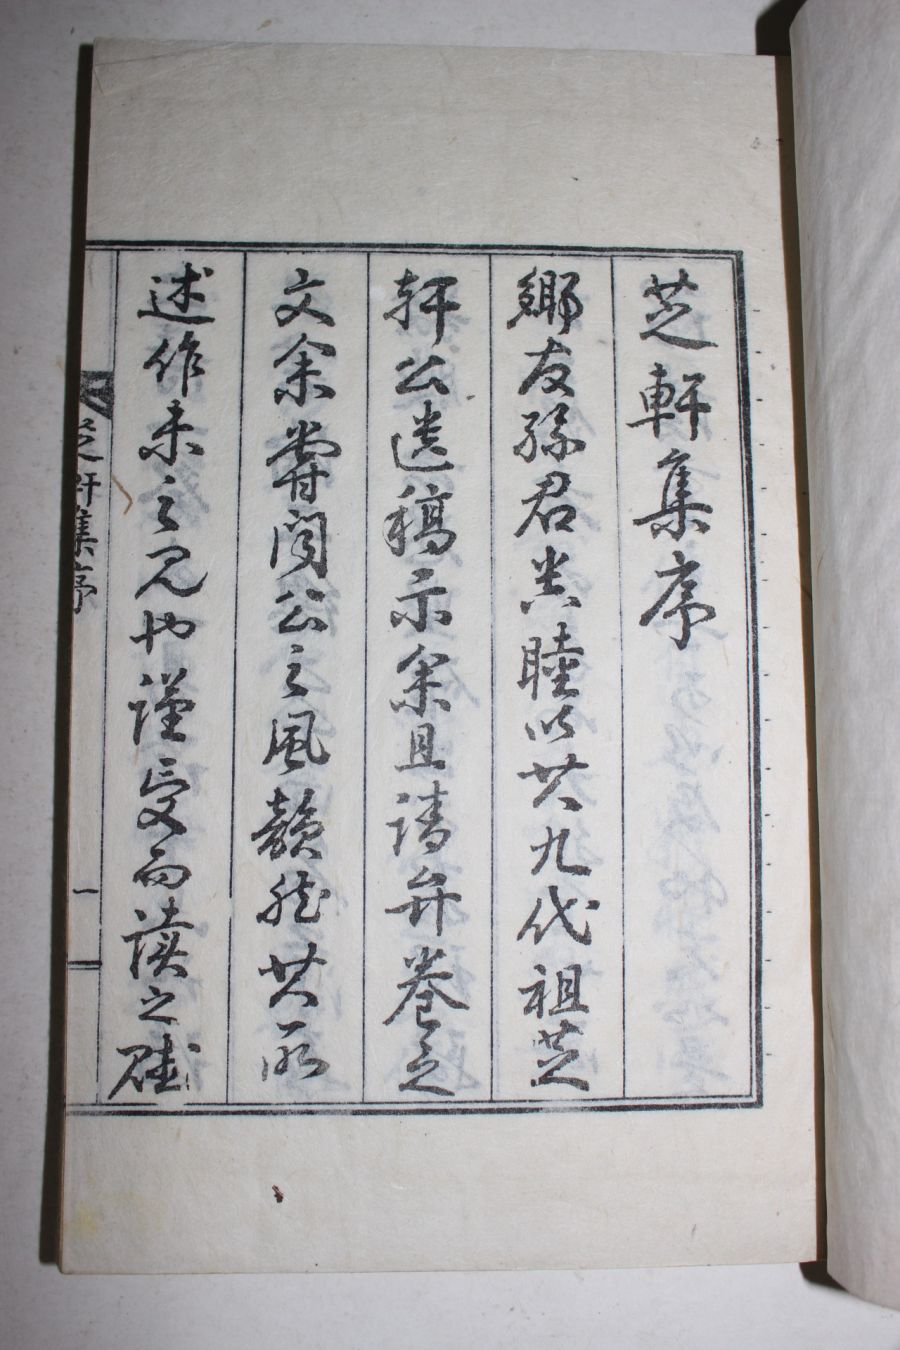 芝軒集序
鄉友孫君晋睦以其九代祖芝
軒公遺稿示余且請弁卷之
文余嘗聞公之風韻然其所
述作未之見也謹受而讀之雖
芝軒集序
一